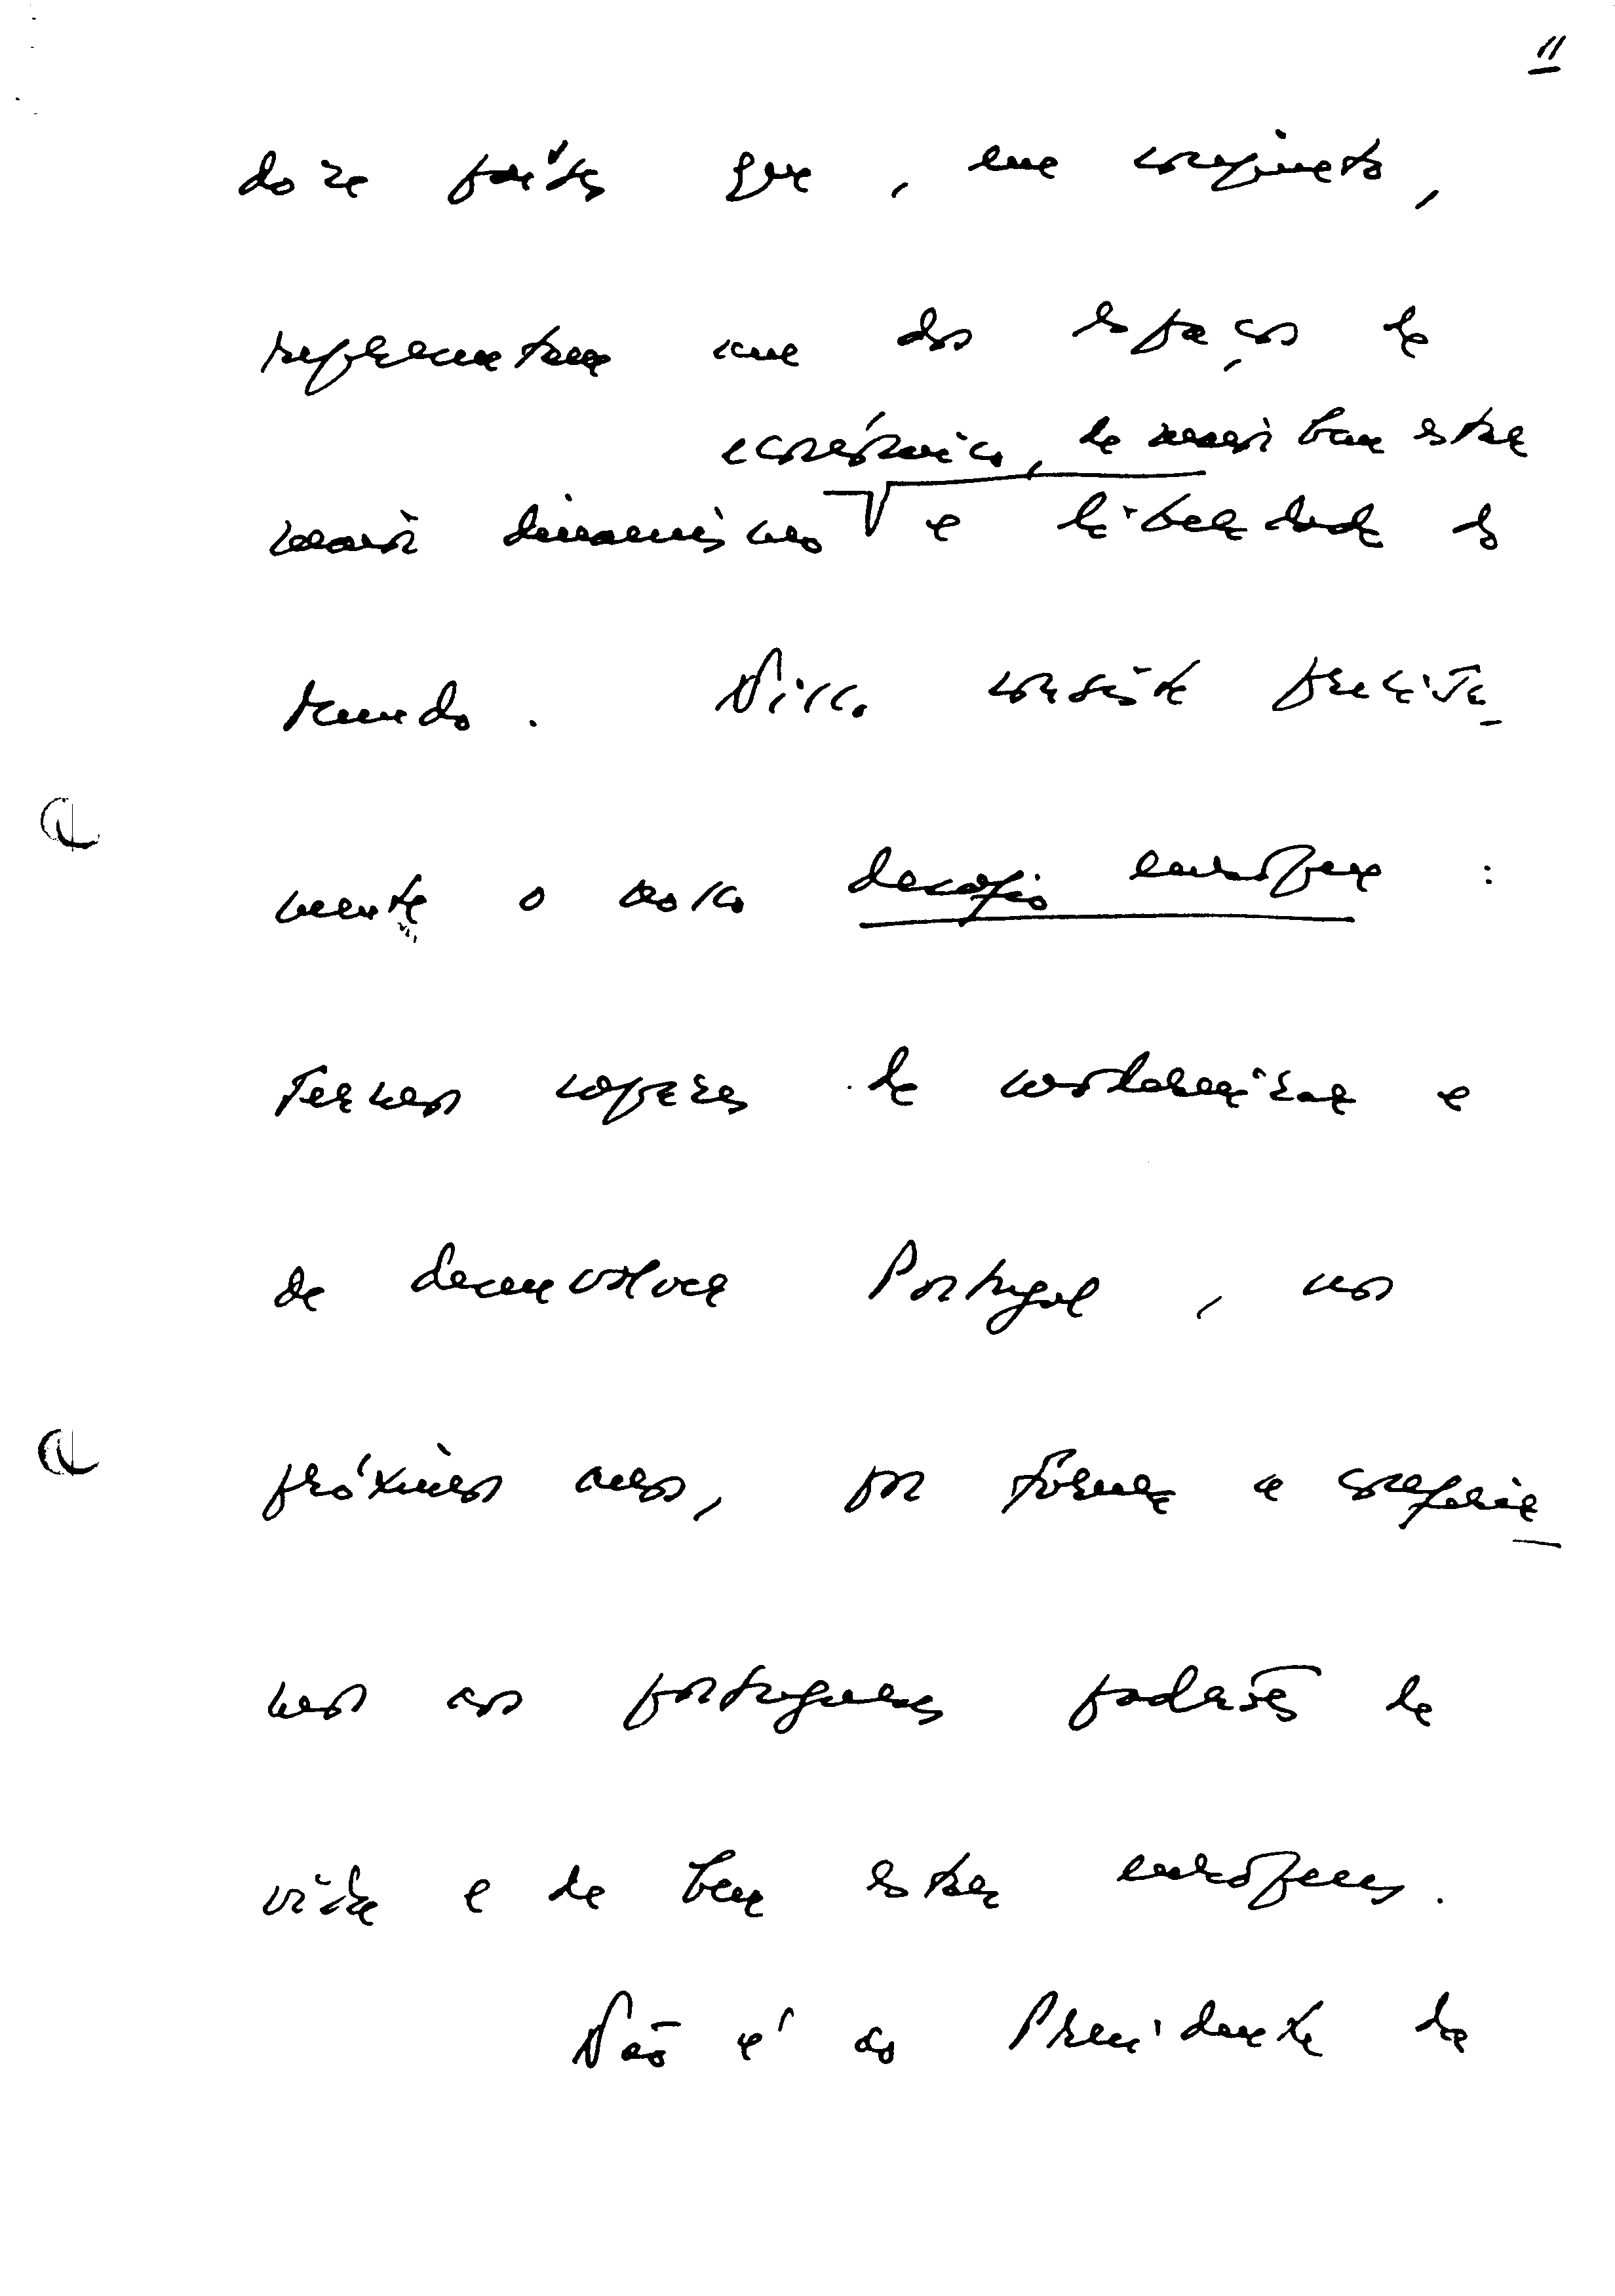 11
doze países que, em conjunto,
representam um dos espaços de
económico, de maior bem estar
maior dinamismo e liberdade do
mundo. Nisso consiste precisa-
mente o nosso desafio europeu:
sermos capazes de modernizar e
de desenvolver Portugal, nos
próximos anos, por forma a conferir-
mos aos portugueses padrões de
vida e de bem estar europeus.
Não é ao Presidente da